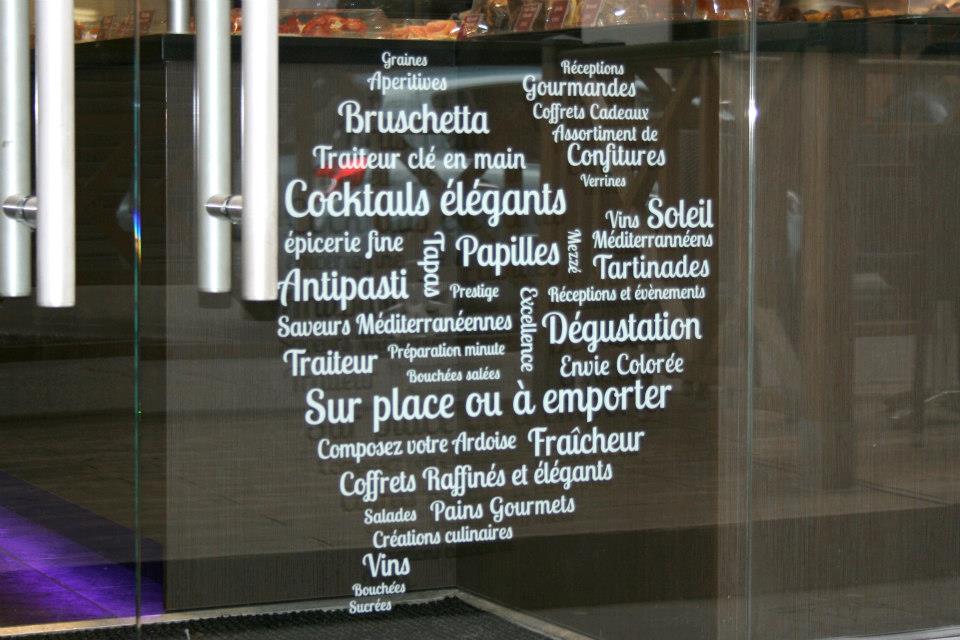 Graines
Aperitives
Bruschetta
Traiteur clé en main
Réceptions
Gourmandes
Coffrets Cadeaux
Assortiment de
Confitures
Verrines
Cocktails élégants
Vins Soleil
Méditerrannéens
épicerie fine
Tapas
Papilles
Mezzé
Tartinades
Antipasti
Prestige
Excellence
Réceptions et évènements
Saveurs Méditerranéennes
Dégustation
Traiteur
Préparation minute
Envie Colorée
Bouchées salées
Sur place ou à emporter
Composez votre Ardoise
Fraîcheur
Coffrets Raffinés et élégants
Salades
Pains Gourmets
Créations culinaires
Vins
Bouchées
Sucrées